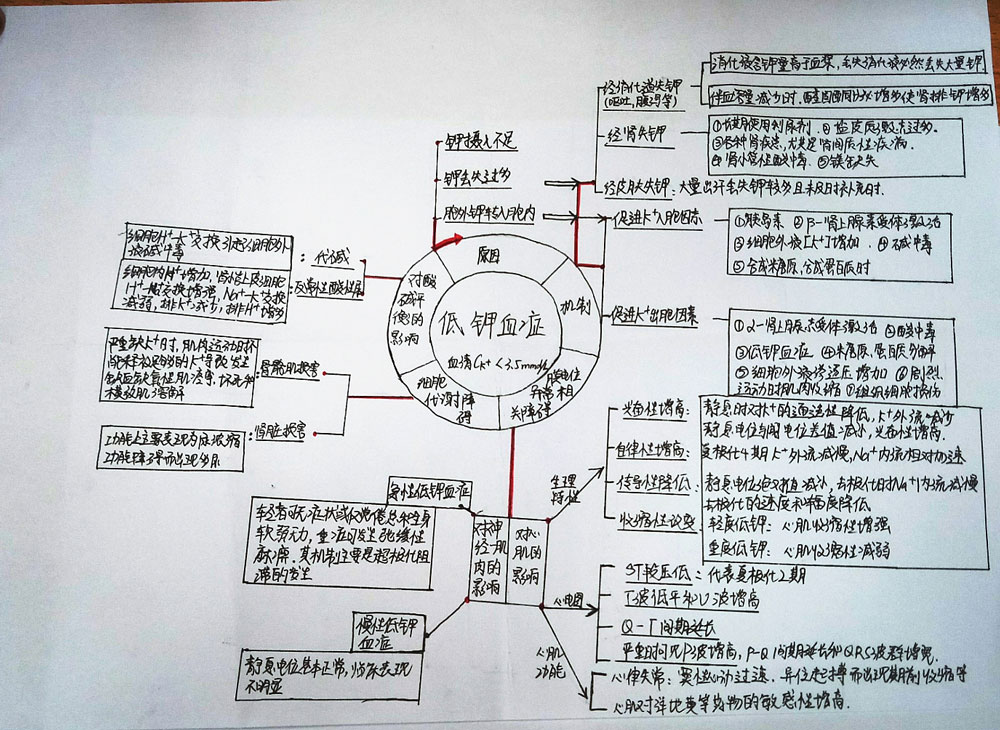 低钾血症
血清[K+]<3.5mmol/L
原因
机制
膜电位
异常相
关障碍
细胞
代谢障
碍
对酸
碱平
衡的
影响
钾摄入不足
钾丢失过多
胞外钾转入胞内
经消化道失钾
(呕吐,腹泻等)
消化液含钾量高于血浆,丢失消化液必然丢失大量钾
伴血容量减少时,醛固酮分泌增多使肾排钾增多
经肾失钾
①长期使用利尿剂.②盐皮质激素过多.
③各种肾疾患,尤其是肾间质性疾病.
④肾小管性酸中毒 ⑤镁缺失
经皮肤失钾:大量出汗丢失钾较多且未及时补充时.
促进K+入胞因素
①胰岛素 ②β-肾上腺素受体激活
③细胞外液[K+]增加 ④碱中毒
⑤合成糖原,合成蛋白质时
促进K+出胞因素
①α-肾上腺素受体激活 ②酸中毒
③低钾血症 ④糖原,蛋白质分解
⑤细胞外液渗透压增加 ⑥剧烈
运动时肌肉收缩 ⑦组织细胞损伤
代碱
细胞H+-K+交换引起细胞外
液碱中毒
反常性酸性尿
细胞内H+增加,肾小管上皮细胞
H+-Na+交换增强,Na+-K+交换
减弱,排K+减少,排H+增多
骨骼肌损害
严重缺K+时,肌肉运动时不
能释放足够的K+导致发生
缺血缺氧性肌痉挛、坏死和
横纹肌溶解
肾脏损害
功能上主要表现为尿浓缩
功能障碍而出现多尿
对神
经-肌
肉的
影响
对心
肌的
影响
急性低钾血症
轻者可无症状或仅觉倦怠和全身
软弱无力,重症可发生弛缓性
麻痹.其机制主要是超极化阻
滞的发生
慢性低钾
血症
静息电位基本正常,临床表现
不明显
生理
特性
兴奋性增高:
静息时对K+的通透性降低,K+外流↓减少
静息电位与阈电位差值减小,兴奋性增高.
自律性增高:
复极化4期K+外流减慢,Na+内流相对加速
传导性降低:
静息电位绝对值减小,去极化时Na+内流减慢
去极化的速度和幅度降低
收缩性改变
轻度低钾:心肌收缩性增强
重度低钾:心肌收缩性减弱
心电图
ST段压低:代表复极化2期
T波低平和U波增高
Q-T间期延长
严重时可见P波增高,P-Q间期延长和QRS波群增宽.
心肌
功能
心律失常:窦性心动过速,异位起搏而出现期前收缩等
心肌对洋地黄等药物的敏感性增高.